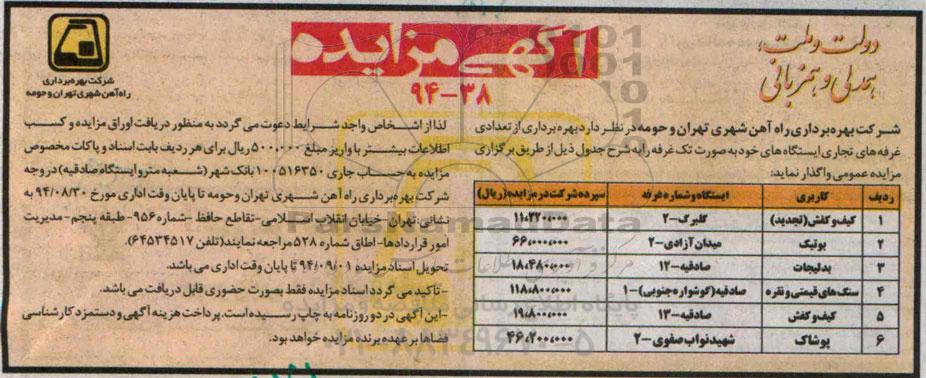 دولت و ملت،
همدلی و همزبانی
آگهی مزایده
۹۴-۳۸
شرکت بهره‌برداری
راه‌آهن شهری تهران و حومه
شرکت بهره برداری راه آهن شهری تهران و حومه در نظر دارد بهره برداری از تعدادی
غرفه های تجاری ایستگاه های خود به صورت تک غرفه را به شرح جدول ذیل از طریق برگزاری
مزایده عمومی واگذار نماید:
ردیف کاربری ایستگاه و شماره غرفه سپرده شرکت در مزایده (ریال)
۱ کیف و کفش (تجدید) گلبرگ-۲ ۱۱،۲۲۰،۰۰۰
۲ بوتیک میدان آزادی-۲ ۶۶،۰۰۰،۰۰۰
۳ بدلیجات صادقیه-۱۲ ۱۸،۴۸۰،۰۰۰
۴ سنگ های قیمتی و نقره صادقیه (گوشواره جنوبی)-۱ ۱۱۸،۸۰۰،۰۰۰
۵ کیف و کفش صادقیه-۱۳ ۱۹،۸۰۰،۰۰۰
۶ پوشاک شهید نواب صفوی-۲ ۴۶،۲۰۰،۰۰۰
لذا از اشخاص واجد شرایط دعوت می گردد به منظور دریافت اوراق مزایده و کسب
اطلاعات بیشتر با واریز مبلغ ۵۰۰،۰۰۰ ریال برای هر ردیف بابت اسناد و پاکات مخصوص
مزایده به حساب جاری ۱۰۰۵۱۶۳۵۰ بانک شهر (شعبه مترو ایستگاه صادقیه) در وجه
شرکت بهره برداری راه آهن شهری تهران و حومه تا پایان وقت اداری مورخ ۹۴/۰۸/۳۰ به
نشانی: تهران - خیابان انقلاب اسلامی - تقاطع حافظ - شماره ۹۵۶ - طبقه پنجم - مدیریت
امور قراردادها - اطاق شماره ۵۲۸ مراجعه نمایند (تلفن ۶۴۵۳۴۵۱۷).
تحویل اسناد مزایده ۹۴/۰۹/۰۱ تا پایان وقت اداری می باشد.
- تاکید می گردد اسناد مزایده فقط بصورت حضوری قابل دریافت می باشد.
- این آگهی در دو روزنامه به چاپ رسیده است. پرداخت هزینه آگهی و دستمزد کارشناسی
فضاها بر عهده برنده مزایده خواهد بود.
ParsNamadData